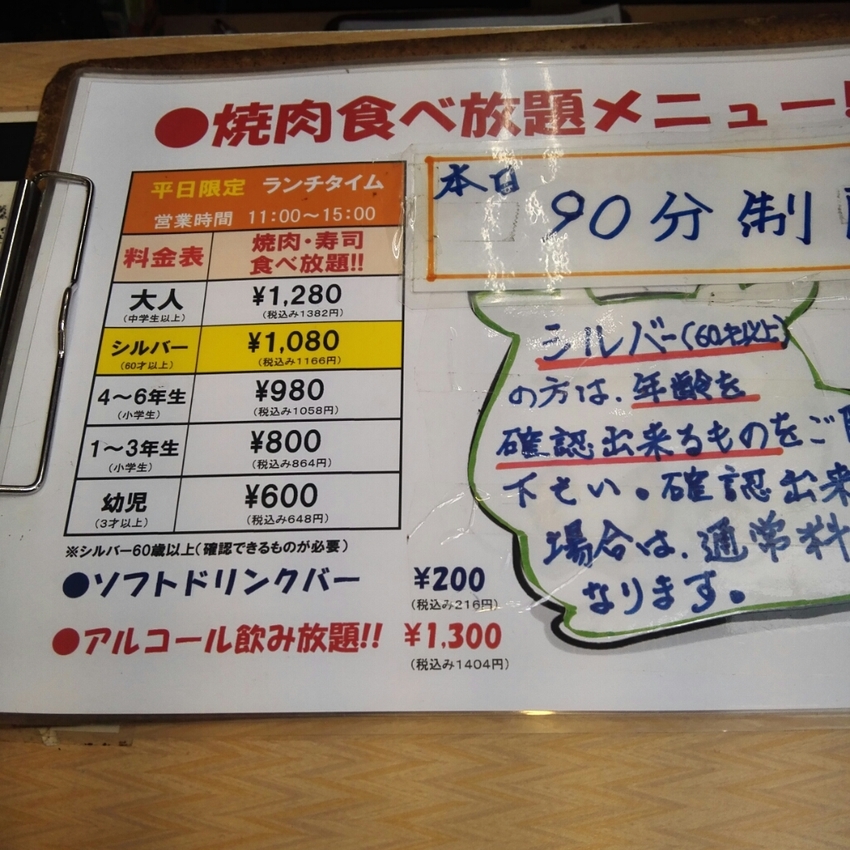 ●焼肉食べ放題メニュー!
平日限定 ランチタイム
営業時間 11:00～15:00
料金表 焼肉・寿司
食べ放題!!
大人 ¥1,280
(中学生以上) (税込み1382円)
シルバー ¥1,080
(60才以上) (税込み1166円)
4～6年生 ¥980
(小学生) (税込み1058円)
1～3年生 ¥800
(小学生) (税込み864円)
幼児 ¥600
(3才以上) (税込み648円)
※シルバー60歳以上(確認できるものが必要)
●ソフトドリンクバー ¥200
(税込み216円)
●アルコール飲み放題!! ¥1,300
(税込み1404円)
本日
90分制
シルバー(60才以上)
の方は、年齢を
確認出来るものをご
下さい。確認出来
場合は、通常料
なります。